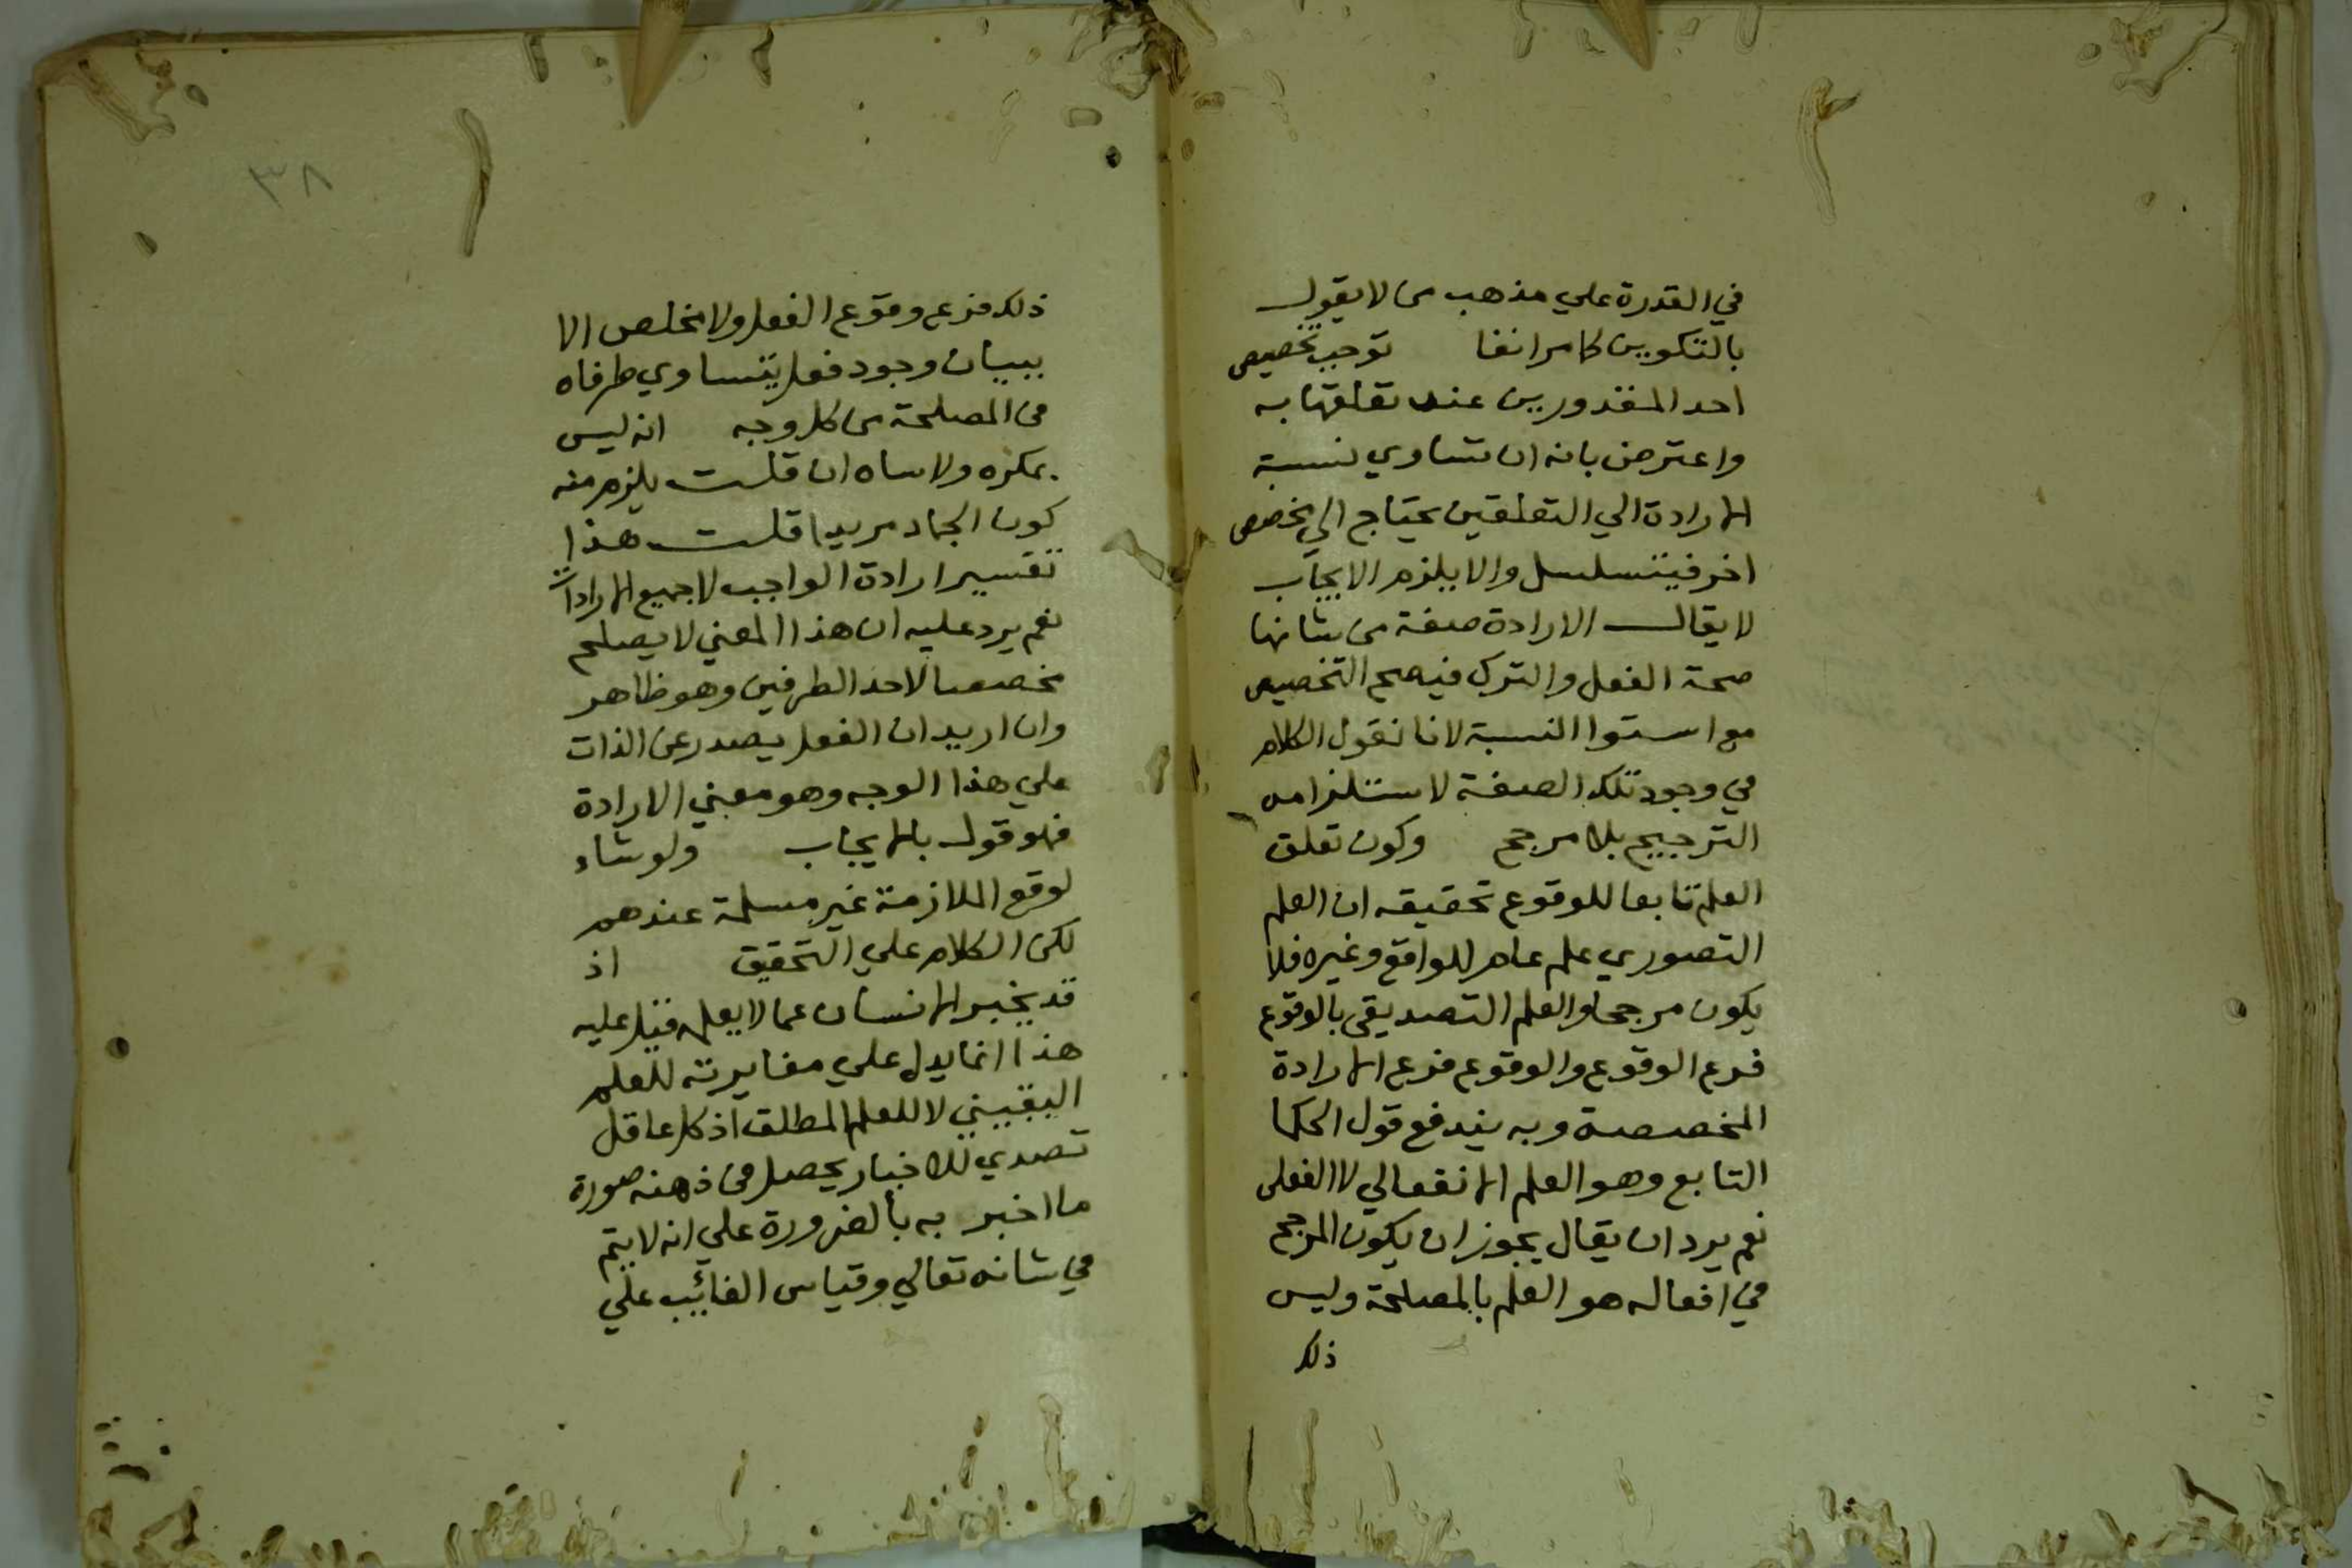 في القدرة علي مذهب من لا يقول
بالتكوين كما مر انفا توجب تخصيص
احد المقدورين عند تعلقها به
واعترض بانه ان تساوي نسبة
الارادة الي التعلقين يحتاج الي مخصص
اخر فيتسلسل والا يلزم الايجاب
لا يقال الارادة صفة من شانها
صحة الفعل والترك فيصح التخصيص
مع استوا النسبة لانا نقول الكلام
في وجود تلك الصفة لاستلزامه
الترجيح بلا مرجح وكون تعلق
العلم تابعا للوقوع تحقيقه ان العلم
التصوري علم عام للواقع وغيره فلا
يكون مرجحا والعلم التصديقي بالوقوع
فرع الوقوع والوقوع فرع الارادة
المخصصة وبه يندفع قول الحكما
التابع وهو العلم الانفعالي لا الفعلي
نعم يرد ان يقال يجوز ان يكون المرجح
في افعاله هو العلم بالمصلحة وليس
ذلك
٣٨
ذلك فرع وقوع الفعل ولا مخلص الا
ببيان وجود فعل يتساوي طرفاه
في المصلحة من كل وجه انه ليس
بمكره ولا ساه ان قلت يلزم منه
كون الجماد مريدا قلت هذا
تفسير ارادة الواجب لا جميع الارادات
نعم يرد عليه ان هذا المعني لا يصلح
مخصصا لاحد الطرفين وهو ظاهر
وان اريد ان الفعل يصدر عن الذات
علي هذا الوجه وهو معني الارادة
فهو قول بالايجاب ولو شاء
لوقع الملازمة غير مسلمة عندهم
لكن الكلام علي التحقيق اذ
قد يخبر الانسان عما لا يعلم قيل عليه
هذا انما يدل علي مغايرته للعلم
اليقيني لا للعلم المطلق اذ كل عاقل
تصدي للاخبار يحصل في ذهنه صورة
ما اخبر به بالضرورة علي انه لا يتم
في شانه تعالي وقياس الغائب علي